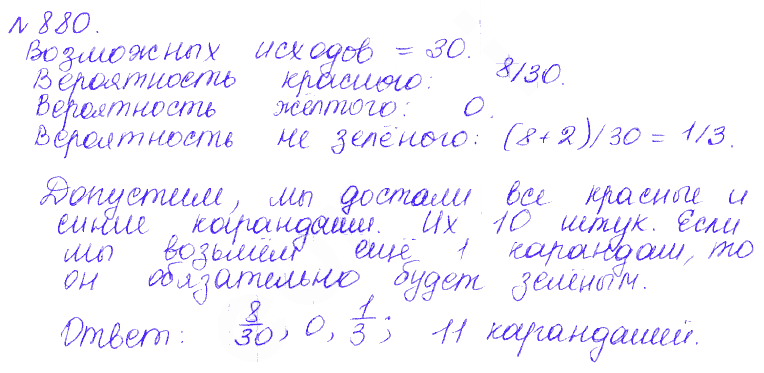 № 880.
Возможных исходов = 30.
Вероятность красного: 8/30.
Вероятность желтого: 0.
Вероятность не зелёного: (8+2)/30 = 1/3.
Допустим, мы достали все красные и
синие карандаши. Их 10 штук. Если
мы возьмём ещё 1 карандаш, то
он обязательно будет зелёным.
Ответ: 8/30, 0, 1/3; 11 карандашей.